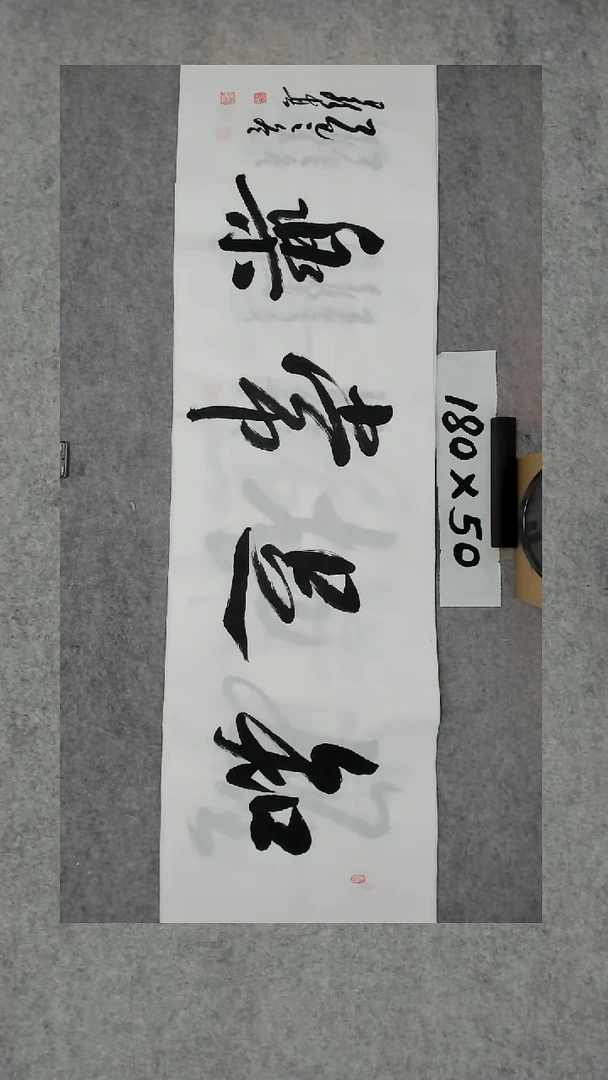 知足常樂
180X50